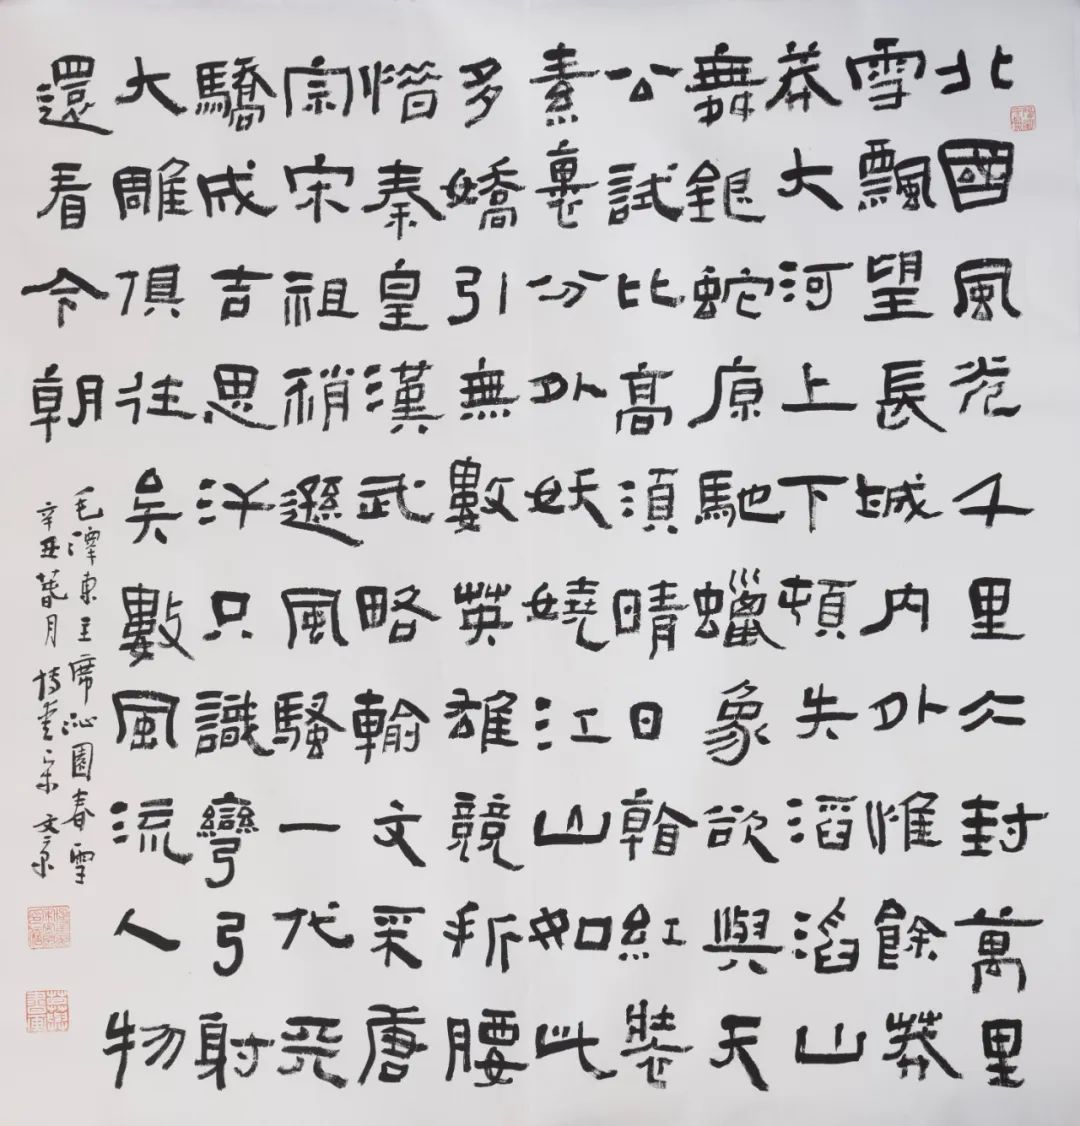 北國風光千里仌封萬里
雪飄望長城內外惟餘莽
莽大河上下頓失滔滔山
舞銀蛇原馳蠟象欲與天
公試比高須晴日看紅裝
素裹分外妖嬈江山如此
多嬌引無數英雄競折腰
惜秦皇漢武略輸文采唐
宗宋祖稍遜風騷一代天
驕成吉思汗只識彎弓射
大雕俱往矣數風流人物
還看今朝
毛澤東主席沁園春雪
辛丑萅月宋文京